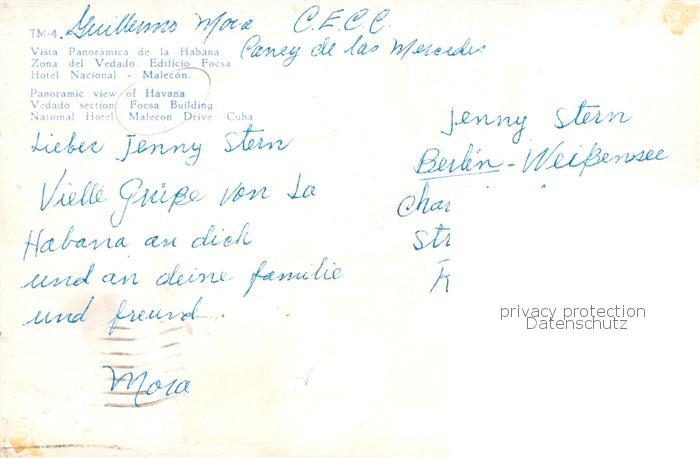 Guillermo Mora C.E.C.C.
Caney de las Mercedes
TM-4.
Vista Panorámica de la Habana
Zona del Vedado. Edificio Focsa
Hotel Nacional - Malecón.
Panoramic view of Havana
Vedado section. Focsa Building
National Hotel. Malecon Drive. Cuba
Lieber Jenny Stern
Vielle Grüße von La
Habana an dich
und an deine familie
und freund.
Mora
Jenny Stern
Berlin-Weißensee
Char
Str
privacy protection
Datenschutz